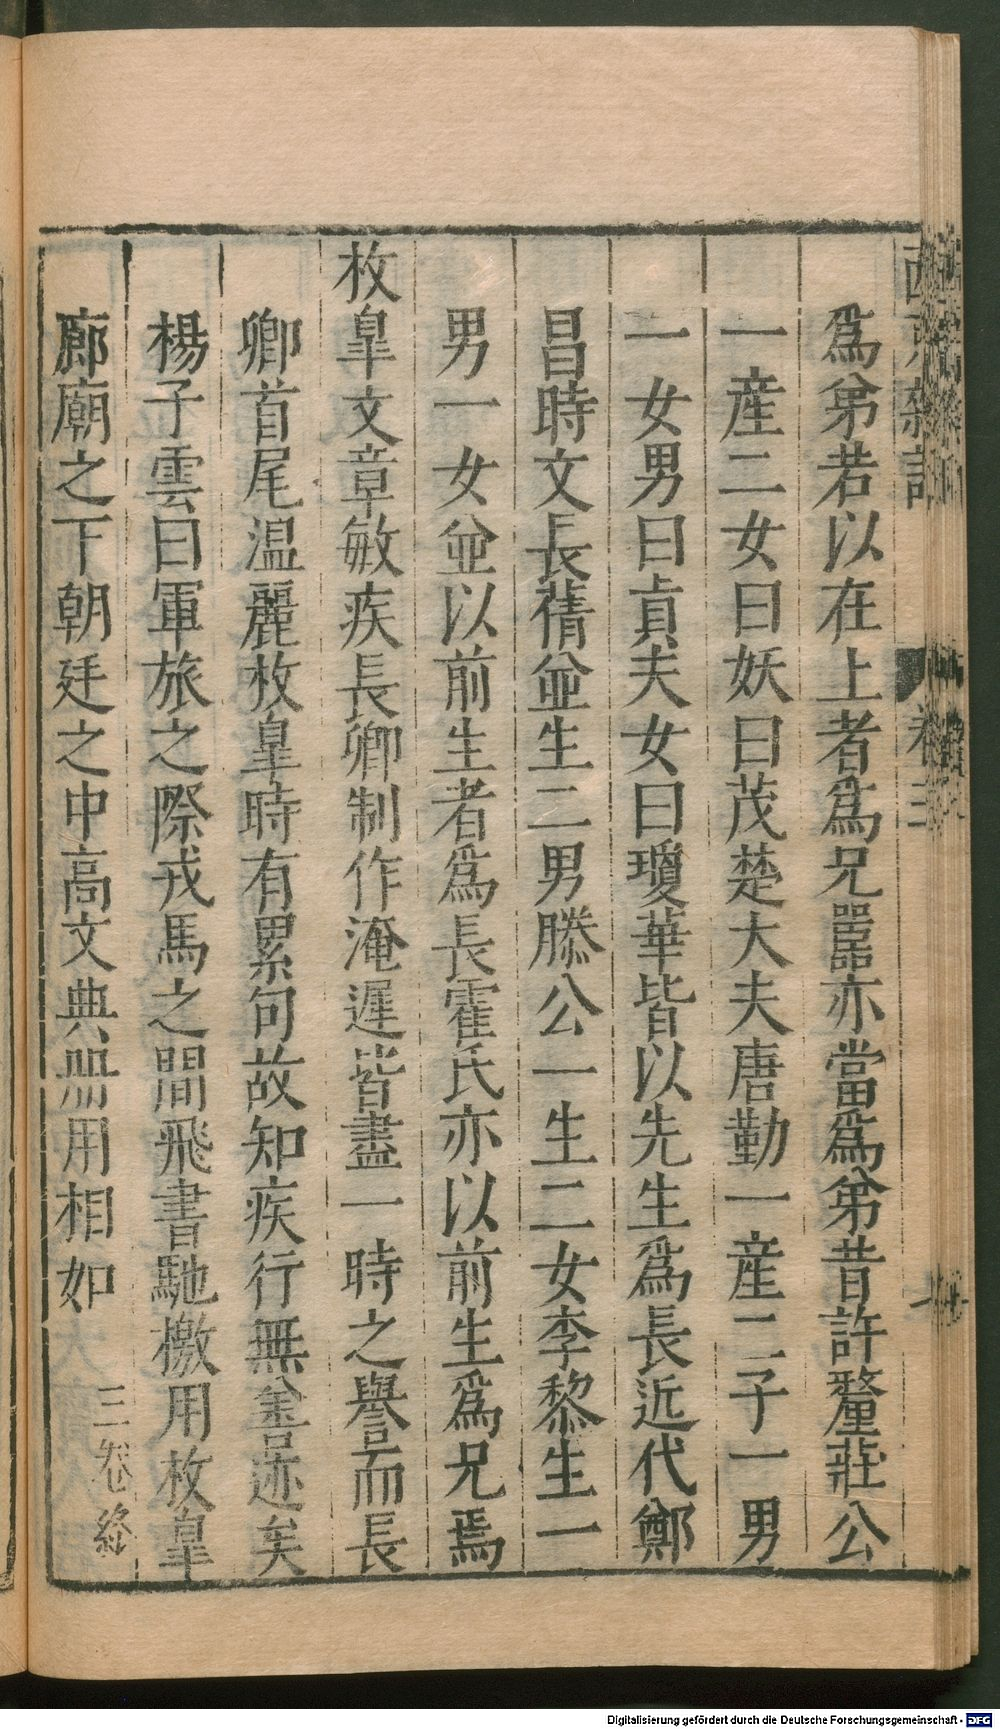 西京雜記 卷三
爲弟若以在上者爲兄嚚亦當爲弟昔許釐莊公
一産二女曰妖曰茂楚大夫唐勤一産二子一男
一女男曰貞夫女曰瓊華皆以先生爲長近代鄭
昌時文長蒨並生二男滕公一生二女李黎生一
男一女並以前生者爲長霍氏亦以前生爲兄焉
枚臯文章敏疾長卿制作淹遲皆盡一時之譽而長
卿首尾温麗枚臯時有累句故知疾行無善迹矣
楊子雲曰軍旅之際戎馬之間飛書馳檄用枚臯
廊廟之下朝廷之中高文典册用相如
三卷終
Digitalisierung gefördert durch die Deutsche Forschungsgemeinschaft - DFG